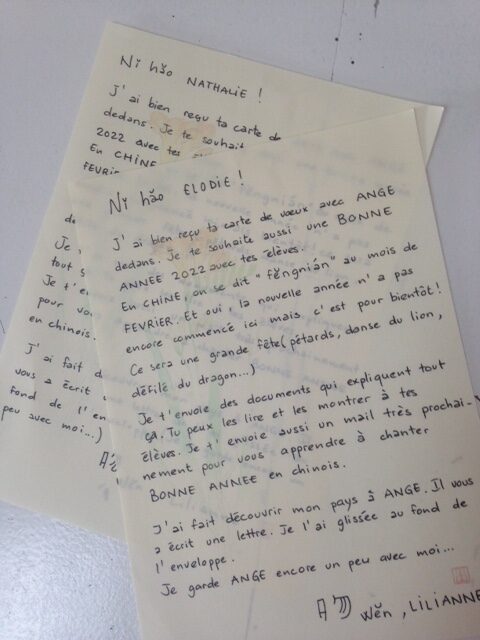 Ni hǎo NATHALIE !
J'ai bien reçu ta carte de
dedans. Je te souhait
2022 avec tes
En CHINE
FEVRIER
de
Je
tout
Je t'en
pour vo
en chinois.
J'ai fait d
vous a écrit
fond de l'en
peu avec moi...)
Ni hǎo ELODIE !
J'ai bien reçu ta carte de vœux avec ANGE
dedans. Je te souhaite aussi une BONNE
ANNEE 2022 avec tes élèves.
En CHINE, on se dit "fēngnián" au mois de
FEVRIER. Et oui la nouvelle année n'a pas
encore commencé ici mais c'est pour bientôt !
Ce sera une grande fête (pétards, danse du lion,
défilé du dragon...)
Je t'envoie des documents qui expliquent tout
ça. Tu peux les lire et les montrer à tes
élèves. Je t'envoie aussi un mail très prochai-
nement pour vous apprendre à chanter
BONNE ANNEE en chinois.
J'ai fait découvrir mon pays à ANGE. Il vous
a écrit une lettre. Je l'ai glissée au fond de
l'enveloppe.
Je garde ANGE encore un peu avec moi...
Wěn, LILIANNE